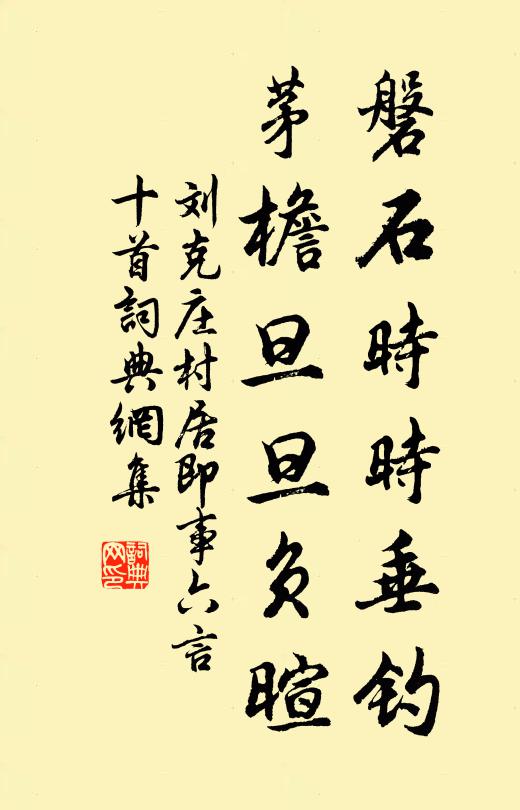 磐石時時垂钓
茅檐旦旦负暄
刘克庄村居即事六言
十首詞典網集
詞典
网印